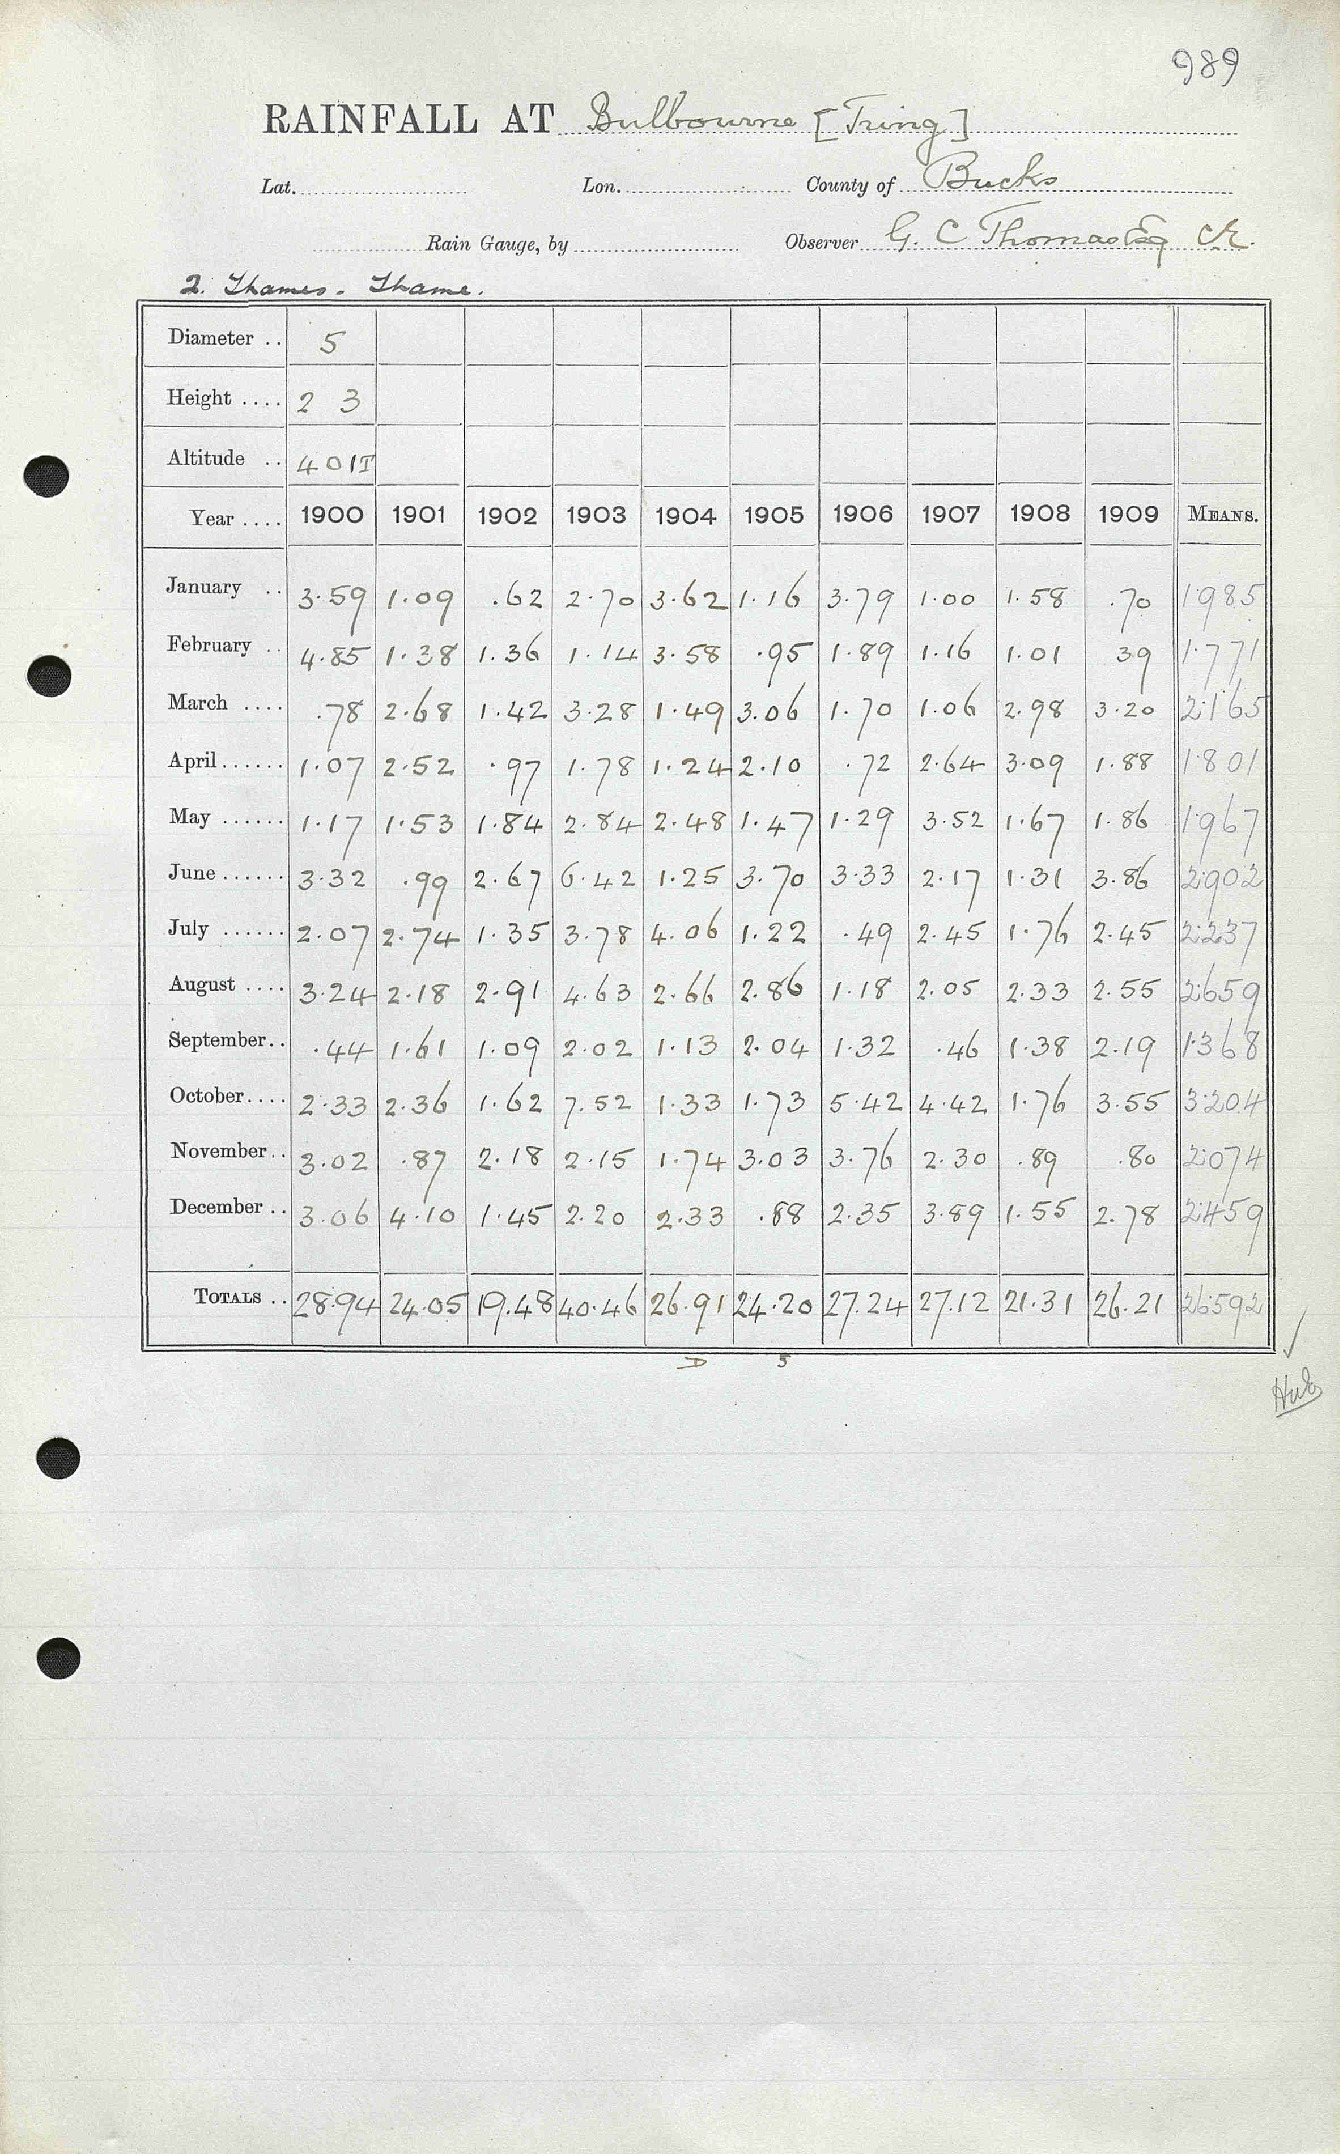 989
RAINFALL AT Bulbourne [Tring]
Lat. Lon. County of Bucks
Rain Gauge, by Observer G. C Thomas Esq CE.
2. Thames - Thame.
Diameter .. 5
Height .... 2 3
Altitude .. 401T
Year .... 1900 1901 1902 1903 1904 1905 1906 1907 1908 1909 MEANS.
January .. 3.59 1.09 .62 2.70 3.62 1.16 3.79 1.00 1.58 .70 1.985
February .. 4.85 1.38 1.36 1.14 3.58 .95 1.89 1.16 1.01 39 1.771
March .... .78 2.68 1.42 3.28 1.49 3.06 1.70 1.06 2.98 3.20 2.165
April...... 1.07 2.52 .97 1.78 1.24 2.10 .72 2.64 3.09 1.88 1.801
May ...... 1.17 1.53 1.84 2.84 2.48 1.47 1.29 3.52 1.67 1.86 1.967
June...... 3.32 .99 2.67 6.42 1.25 3.70 3.33 2.17 1.31 3.86 2.902
July ...... 2.07 2.74 1.35 3.78 4.06 1.22 .49 2.45 1.76 2.45 2.237
August .... 3.24 2.18 2.91 4.63 2.66 2.86 1.18 2.05 2.33 2.55 2.659
September.. .44 1.61 1.09 2.02 1.13 2.04 1.32 .46 1.38 2.19 1.368
October.... 2.33 2.36 1.62 7.52 1.33 1.73 5.42 4.42 1.76 3.55 3.204
November.. 3.02 .87 2.18 2.15 1.74 3.03 3.76 2.30 .89 .80 2.074
December .. 3.06 4.10 1.45 2.20 2.33 .88 2.35 3.89 1.55 2.78 2.459
TOTALS .. 28.94 24.05 19.48 40.46 26.91 24.20 27.24 27.12 21.31 26.21 26.592
D 5